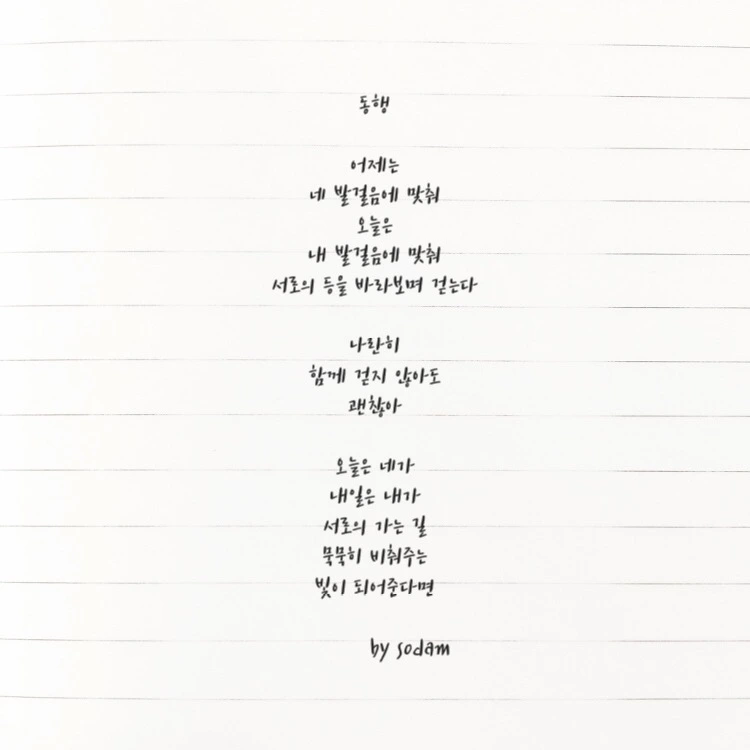 동행
어제는
네 발걸음에 맞춰
오늘은
내 발걸음에 맞춰
서로의 등을 바라보며 걷는다
나란히
함께 걷지 않아도
괜찮아
오늘은 네가
내일은 내가
서로의 가는 길
묵묵히 비춰주는
빛이 되어준다면
by sodam